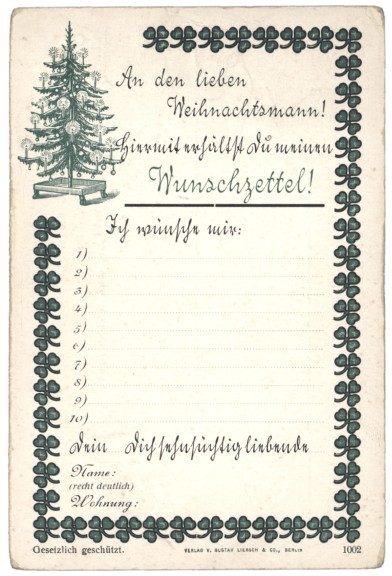 An den lieben
Weihnachtsmann!
Hiermit erhältst Du meinen
Wunschzettel!
Ich wünsche mir:
1)
2)
3)
4)
5)
6)
7)
8)
9)
10)
Dein Dich sehnsüchtig liebende
Name:
(recht deutlich)
Wohnung:
Gesetzlich geschützt.
VERLAG V. GUSTAV LIERSCH & CO., BERLIN
1002